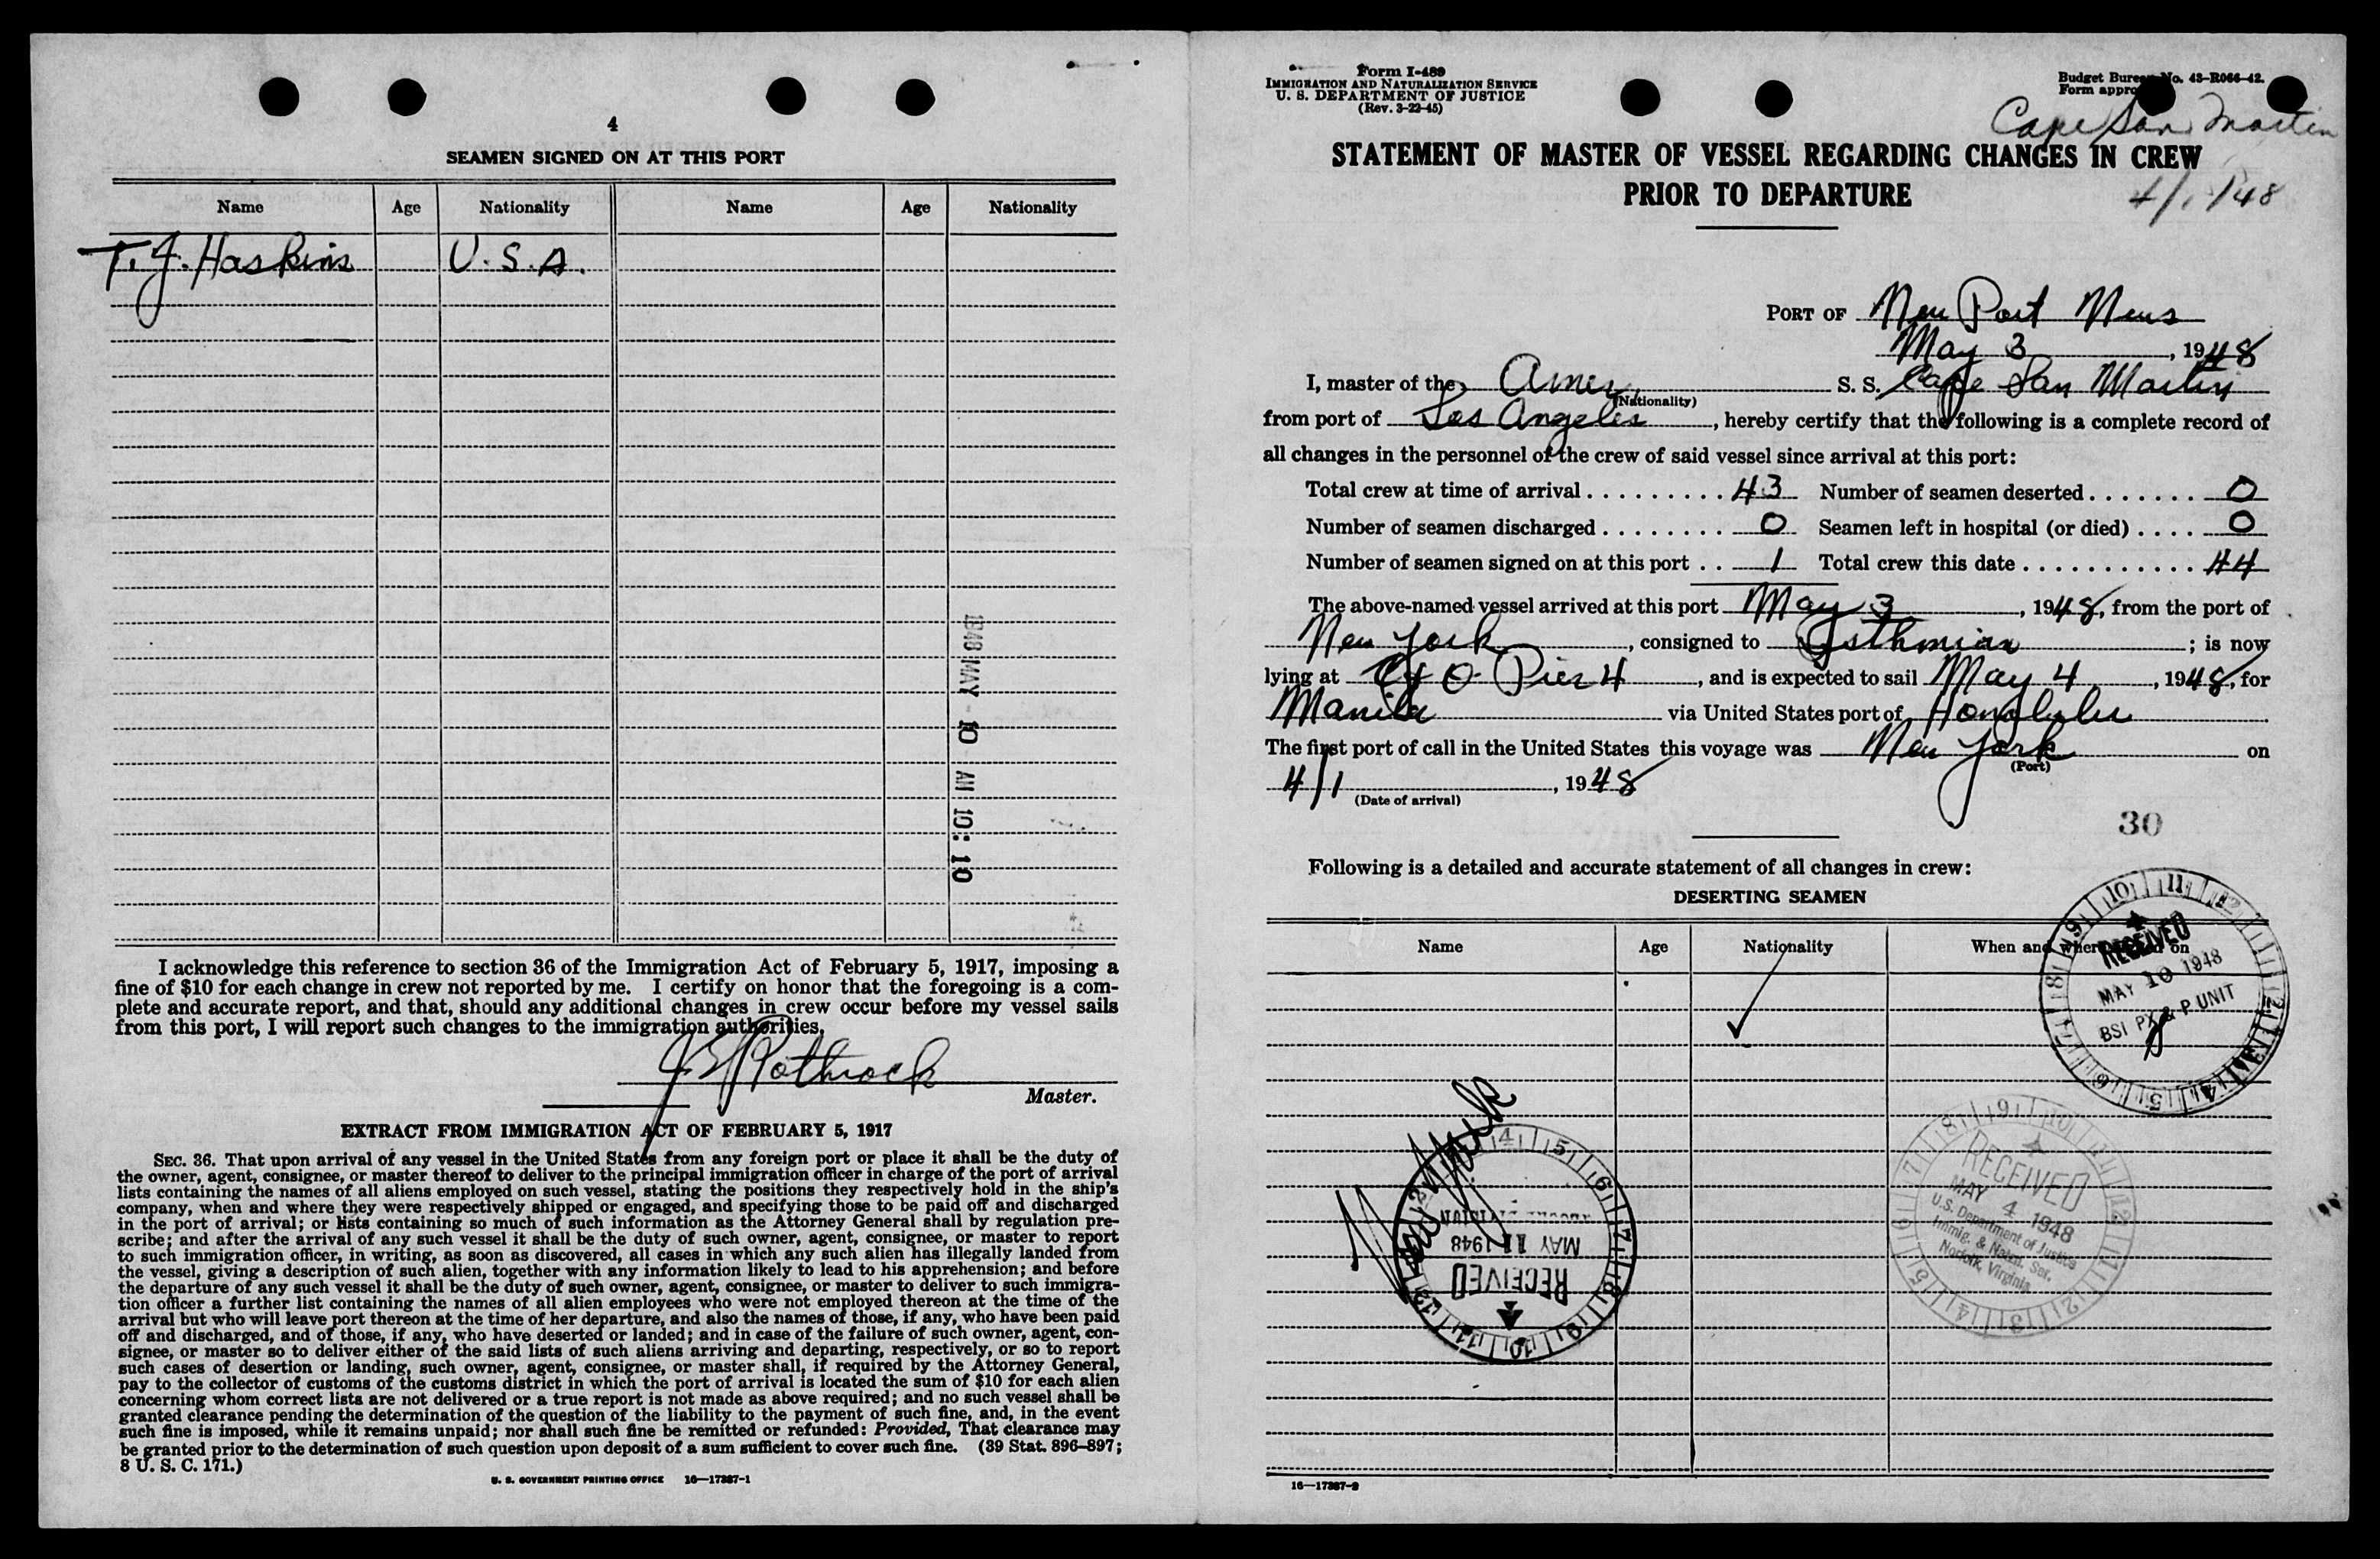 4
SEAMEN SIGNED ON AT THIS PORT
Name Age Nationality Name Age Nationality
T. J. Haskins U.S.A.
1948 MAY - 10 AM 10:10
I acknowledge this reference to section 36 of the Immigration Act of February 5, 1917, imposing a
fine of $10 for each change in crew not reported by me. I certify on honor that the foregoing is a com-
plete and accurate report, and that, should any additional changes in crew occur before my vessel sails
from this port, I will report such changes to the immigration authorities.
Rothrock
Master.
EXTRACT FROM IMMIGRATION ACT OF FEBRUARY 5, 1917
SEC. 36. That upon arrival of any vessel in the United States from any foreign port or place it shall be the duty of
the owner, agent, consignee, or master thereof to deliver to the principal immigration officer in charge of the port of arrival
lists containing the names of all aliens employed on such vessel, stating the positions they respectively hold in the ship's
company, when and where they were respectively shipped or engaged, and specifying those to be paid off and discharged
in the port of arrival; or lists containing so much of such information as the Attorney General shall by regulation pre-
scribe; and after the arrival of any such vessel it shall be the duty of such owner, agent, consignee, or master to report
to such immigration officer, in writing, as soon as discovered, all cases in which any such alien has illegally landed from
the vessel, giving a description of such alien, together with any information likely to lead to his apprehension; and before
the departure of any such vessel it shall be the duty of such owner, agent, consignee, or master to deliver to such immigra-
tion officer a further list containing the names of all alien employees who were not employed thereon at the time of the
arrival but who will leave port thereon at the time of her departure, and also the names of those, if any, who have been paid
off and discharged, and of those, if any, who have deserted or landed; and in case of the failure of such owner, agent, con-
signee, or master so to deliver either of the said lists of such aliens arriving and departing, respectively, or so to report
such cases of desertion or landing, such owner, agent, consignee, or master shall, if required by the Attorney General,
pay to the collector of customs of the customs district in which the port of arrival is located the sum of $10 for each alien
concerning whom correct lists are not delivered or a true report is not made as above required; and no such vessel shall be
granted clearance pending the determination of the question of the liability to the payment of such fine, and, in the event
such fine is imposed, while it remains unpaid; nor shall such fine be remitted or refunded: Provided, That clearance may
be granted prior to the determination of such question upon deposit of a sum sufficient to cover such fine. (39 Stat. 896-897;
8 U. S. C. 171.)
U. S. GOVERNMENT PRINTING OFFICE 16—17387-1
Form I-489
IMMIGRATION AND NATURALIZATION SERVICE
U. S. DEPARTMENT OF JUSTICE
(Rev. 3-22-45)
Budget Bureau No. 43-R066-42.
Form appro
Cape San Martin
STATEMENT OF MASTER OF VESSEL REGARDING CHANGES IN CREW
PRIOR TO DEPARTURE
4/1/48
PORT OF New Port News
May 3, 1948
I, master of the Amer. S. S. Cape San Martin
(Nationality)
from port of Los Angeles, hereby certify that the following is a complete record of
all changes in the personnel of the crew of said vessel since arrival at this port:
Total crew at time of arrival 43 Number of seamen deserted 0
Number of seamen discharged 0 Seamen left in hospital (or died) 0
Number of seamen signed on at this port 1 Total crew this date 44
The above-named vessel arrived at this port May 3, 1948, from the port of
New York, consigned to Isthmian; is now
lying at C & O Pier 4, and is expected to sail May 4, 1948, for
Manila via United States port of Honolulu
The first port of call in the United States this voyage was New York on
(Port)
4/1, 1948
(Date of arrival)
30
Following is a detailed and accurate statement of all changes in crew:
DESERTING SEAMEN
Name Age Nationality When and where signed on
RECEIVED
MAY 10 1948
BSI PX & P UNIT
RECEIVED
MAY 4 1948
U.S. Department of Justice
Immig. & Natzn. Ser.
Norfolk, Virginia
RECEIVED
MAY 11 1948
16—17387-2